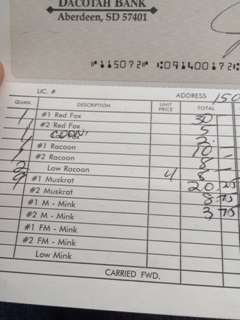 DACOTAH BANK
Aberdeen, SD 57401
⑈115072⑈ ⑆091400172⑆
LIC. # ADDRESS 150
QUAN. DESCRIPTION UNIT PRICE TOTAL
1 #1 Red Fox 30
1 #2 Red Fox 5
1 COON 2
1 #1 Racoon 10 —
1 #2 Racoon 8 —
2 Low Racoon 4 8
9 #1 Muskrat 20
#2 Muskrat 8
#1 M - Mink 3
#2 M - Mink
#1 FM - Mink
#2 FM - Mink
Low Mink
CARRIED FWD.